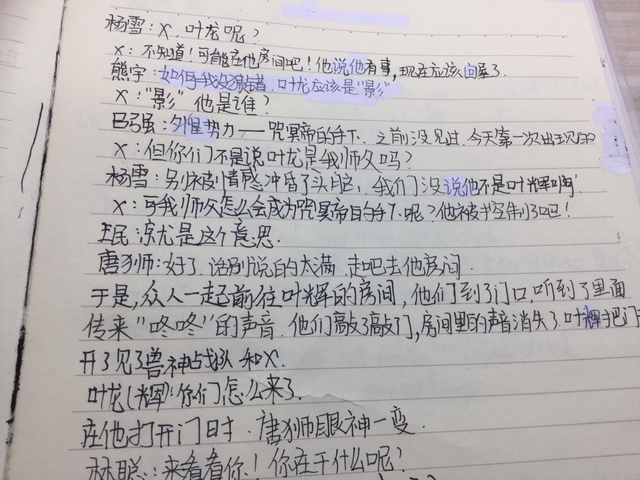 杨雪:X.叶龙呢?
X:不知道!可能在他房间吧!他说他有事,现在应该回屋了.
熊宇:如何我没猜错.叶龙应该是“影”
X:“影”他是谁?
巴强:外星势力——咒冥帝的手下.之前没见过.今天第一次出现的
X:但你们不是说叶龙是我师父吗?
杨雪:别被情感冲昏了头脑,我们没说他不是叶辉啊!
X:可我师父怎么会成为咒冥帝的手下呢?他被控制了吧!
王民:就是这个意思.
唐狮:好了.话别说的太满.走吧去他房间.
于是,众人一起前往叶辉的房间,他们到了门口,听到了里面
传来“咚咚”的声音.他们敲了敲门,房间里的声音消失了.叶辉把门
开了见了兽神战队和X.
叶龙(辉):你们怎么来了.
在他打开门时.唐狮眼神一变.
林聪:来看看你!你在干什么呢?